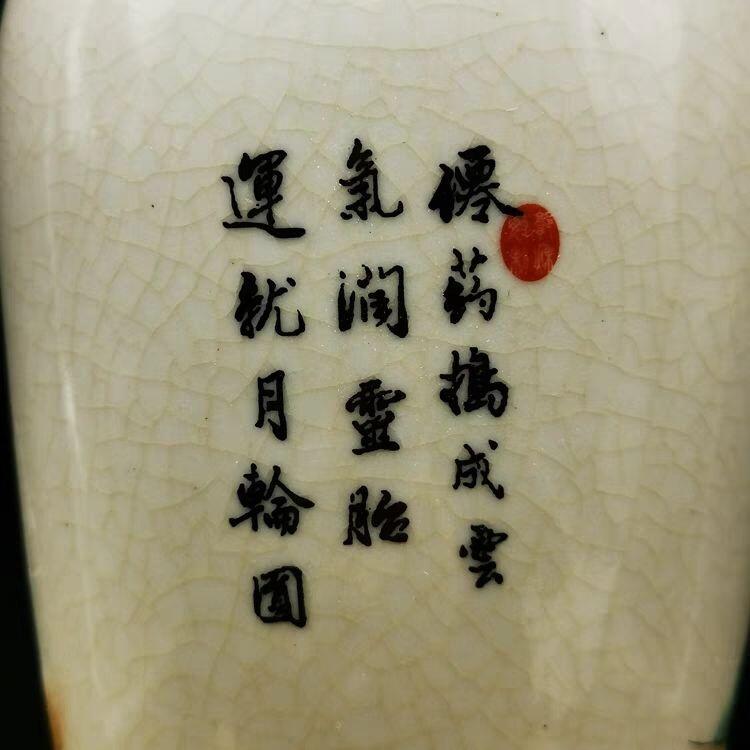 僊药搗成雲
氣潤靈胎
運就月輪圓